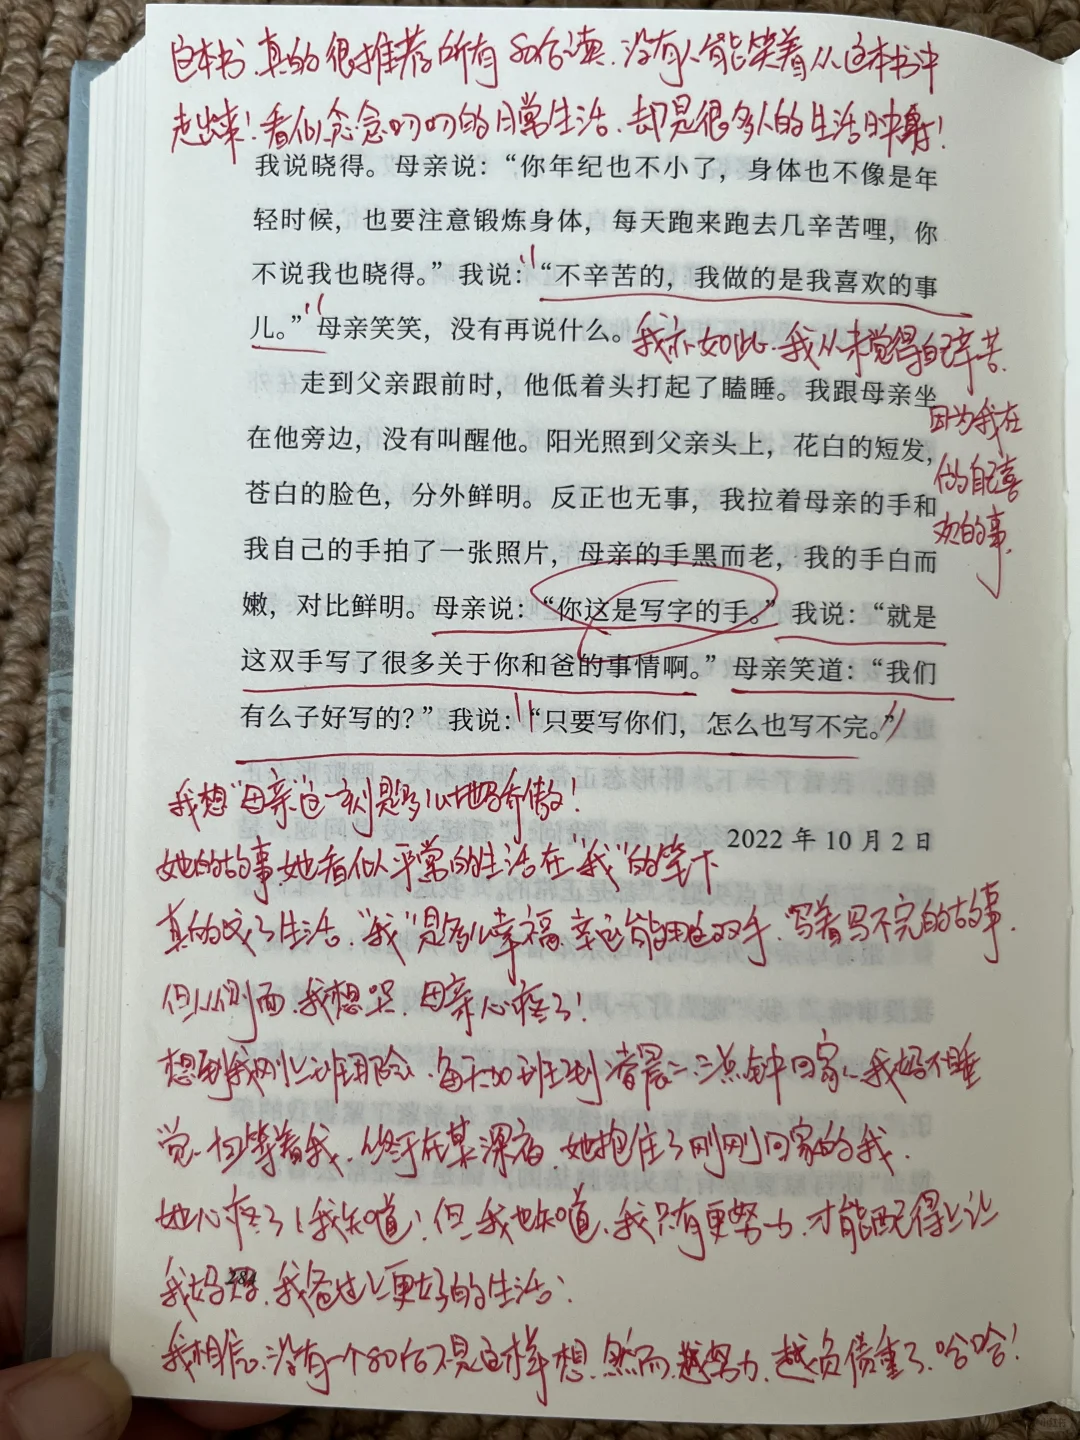 这本书.真的很推荐所有80后读.没有人能笑着从这本书中
走出来!看似念念叨叨的日常生活.却是很多人的生活日常!
我说晓得。母亲说：“你年纪也不小了，身体也不像是年
轻时候，也要注意锻炼身体，每天跑来跑去几辛苦哩，你
不说我也晓得。”我说：“不辛苦的，我做的是我喜欢的事
儿。”母亲笑笑，没有再说什么。
我亦如此.我从未觉得自己辛苦.
因为我在
做的自己喜
欢的事.
走到父亲跟前时，他低着头打起了瞌睡。我跟母亲坐
在他旁边，没有叫醒他。阳光照到父亲头上，花白的短发，
苍白的脸色，分外鲜明。反正也无事，我拉着母亲的手和
我自己的手拍了一张照片，母亲的手黑而老，我的手白而
嫩，对比鲜明。母亲说：“你这是写字的手。”我说：“就是
这双手写了很多关于你和爸的事情啊。”母亲笑道：“我们
有么子好写的？”我说：“只要写你们，怎么也写不完。”
我想“母亲”这一刻是多么地骄傲!
2022 年 10 月 2 日
她的故事.她看似平常的生活在“我”的笔下
真的成了生活.“我”是多么幸福.幸运能用这双手.写着写不完的故事.
但从侧面.我想哭.母亲心疼了!
想到我刚上班那会.每天加班到凌晨二三点钟回家.我妈不睡
觉.但等着我.终于在某深夜.她抱住了刚刚回家的我.
她心疼了!我知道!但我也知道.我只有更努力.才能配得上让
我妈妈.我爸过上更好的生活;
284
我相信.没有一个80后不是这样想.然而.越努力.越负债重了.哈哈!